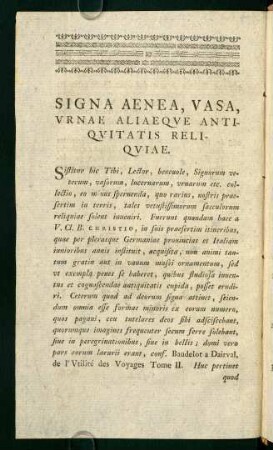 SIGNA AENEA, VASA,
VRNAE ALIAEQVE ANTI-
QVITATIS RELI-
QVIAE.
Sistitur hic Tibi, Lector, beneuole, Signorum ve-
terum, vasorum, lucernarum, vrnarum etc. col-
lectio, eo minus spernenda, quo rarius, nostris prae-
sertim in terris, tales vetustissimorum saeculorum
reliquiae solent inueniri. Fuerunt quondam haec a
V. Cl. B. CHRISTIO, in suis praesertim itineribus,
quae per plerasque Germaniae prouincias et Italiam
iunioribus annis instituit, acquisita, non animi tan-
tum gratia aut in vanum musei ornamentum, sed
vt exempla penes se haberet, quibus studiosa iuuen-
tus et cognoscendae antiquitatis cupida, posset erudi-
ri. Ceterum quod ad deorum signa attinet, scien-
dum omnia esse formae minoris ex eorum numero,
quos pagani, ceu tutelares deos sibi adsciscebant,
quorumque imagines frequenter secum ferre solebant,
siue in peregrinationibus, siue in bellis; domi vero
pars eorum lararii erant, conf. Baudelot a Dairval,
de l'Vtilité des Voyages Tome II. Huc pertinet
quod